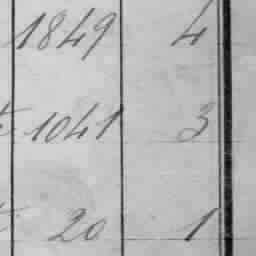 1849 4
1041 3
20 1